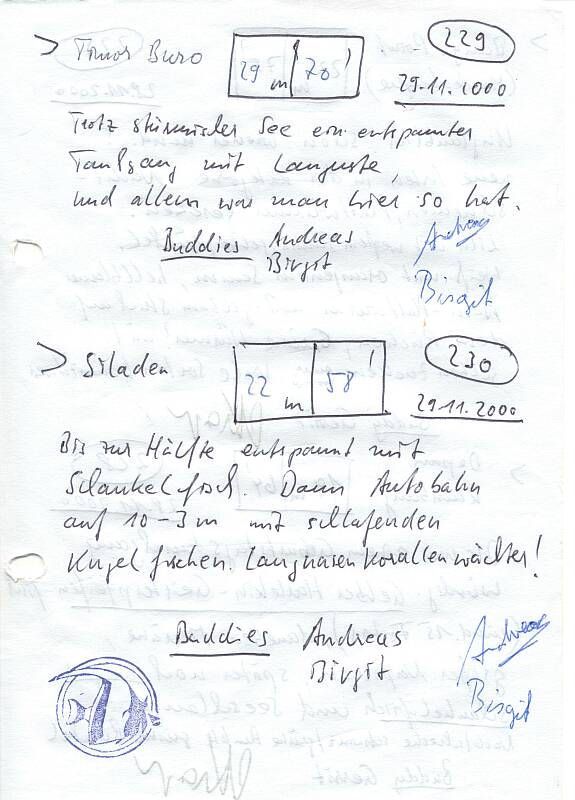 > Timor Buro 29 m 70' 229
29.11.2000
Trotz stürmischer See ein entspannter
Taufgang mit Languste,
und allem was man hier so hat.
Buddies Andreas
Birgit
Andreas
Birgit
> Siladen 22 m 58' 230
29.11.2000
Bis zur Hälfte entspannt mit
Schaukelfisch. Dann Autobahn
auf 10-3m mit schlafenden
Kugelfischen. Langnasenkorallenwächter!
Buddies Andreas
Birgit
Andreas
Birgit